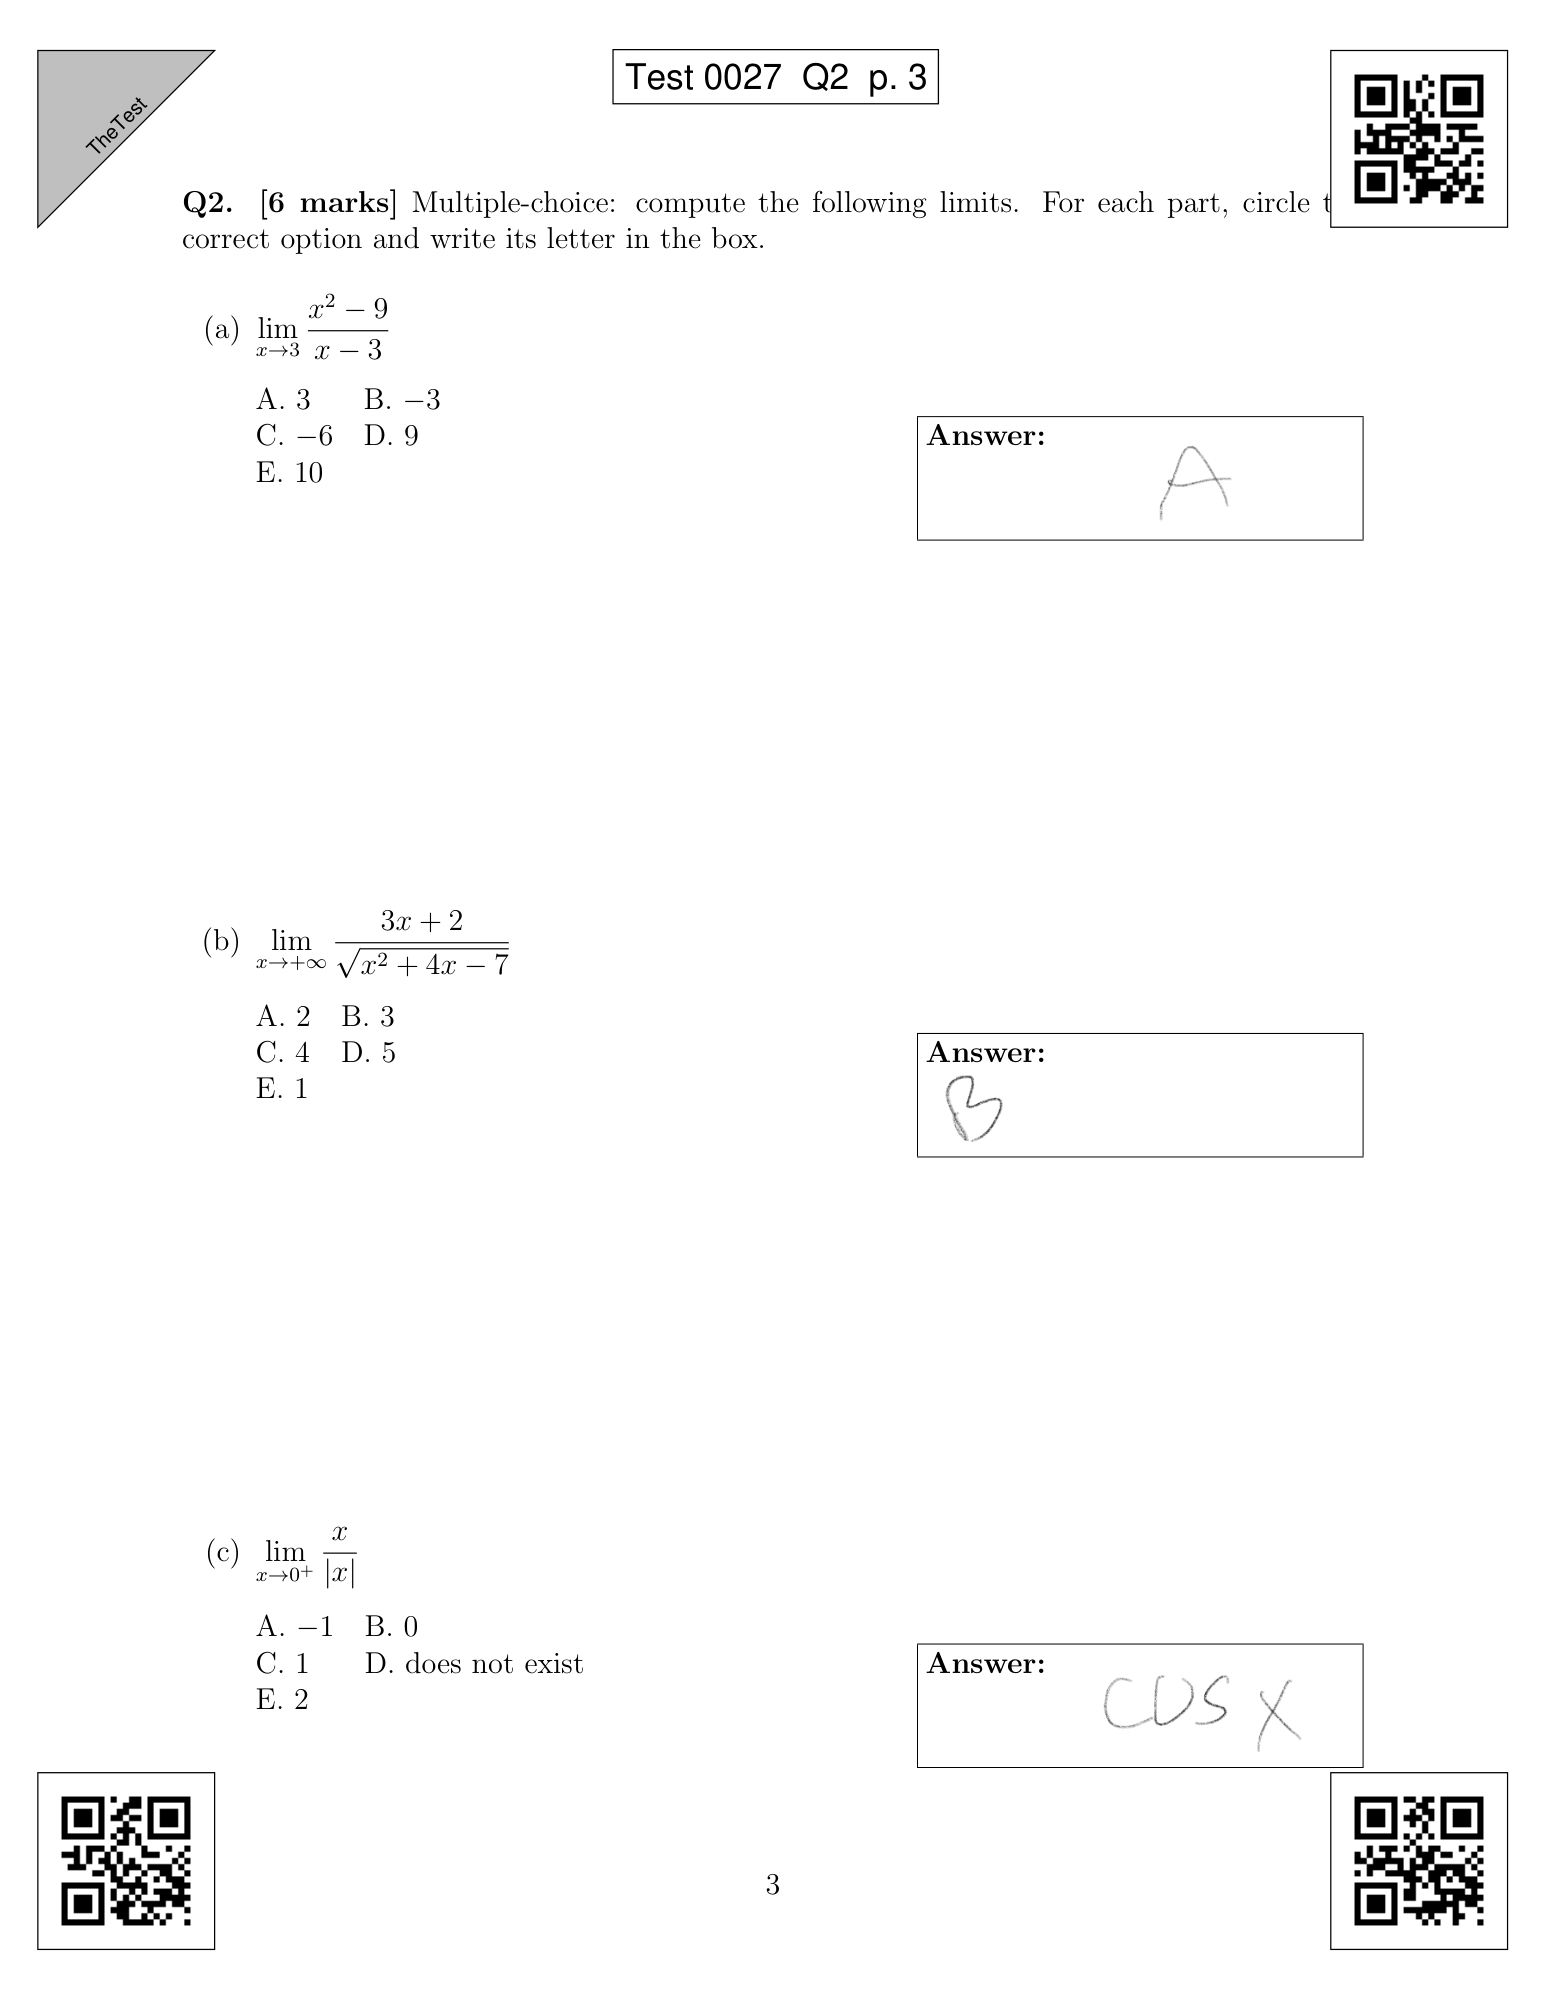 TheTest
Test 0027 Q2 p. 3
Q2. [6 marks] Multiple-choice: compute the following limits. For each part, circle t
correct option and write its letter in the box.
(a) lim x→3 (x² − 9)/(x − 3)
A. 3 B. −3
C. −6 D. 9
E. 10
Answer:
A
(b) lim x→+∞ (3x + 2)/√(x² + 4x − 7)
A. 2 B. 3
C. 4 D. 5
E. 1
Answer:
B
(c) lim x→0⁺ x/|x|
A. −1 B. 0
C. 1 D. does not exist
E. 2
Answer:
cos x
3